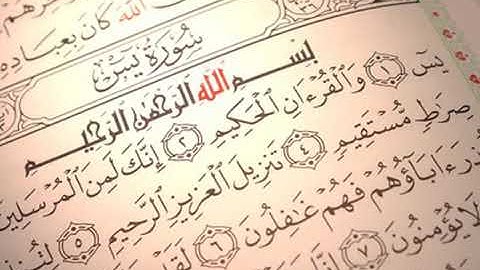 الله كان بعباده
سُورَةُ يسٓ
بِسْمِ اللهِ الرَّحْمٰنِ الرَّحِيمِ
يسٓ ١ وَالْقُرْءَانِ الْحَكِيمِ ٢ إِنَّكَ لَمِنَ الْمُرْسَلِينَ
صِرَٰطٍ مُّسْتَقِيمٍ ٤ تَنزِيلَ الْعَزِيزِ الرَّحِيمِ ٥
ءَابَآؤُهُمْ فَهُمْ غَٰفِلُونَ ٦ لَقَدْ
لَا يُؤْمِنُونَ ٧ إِنَّا